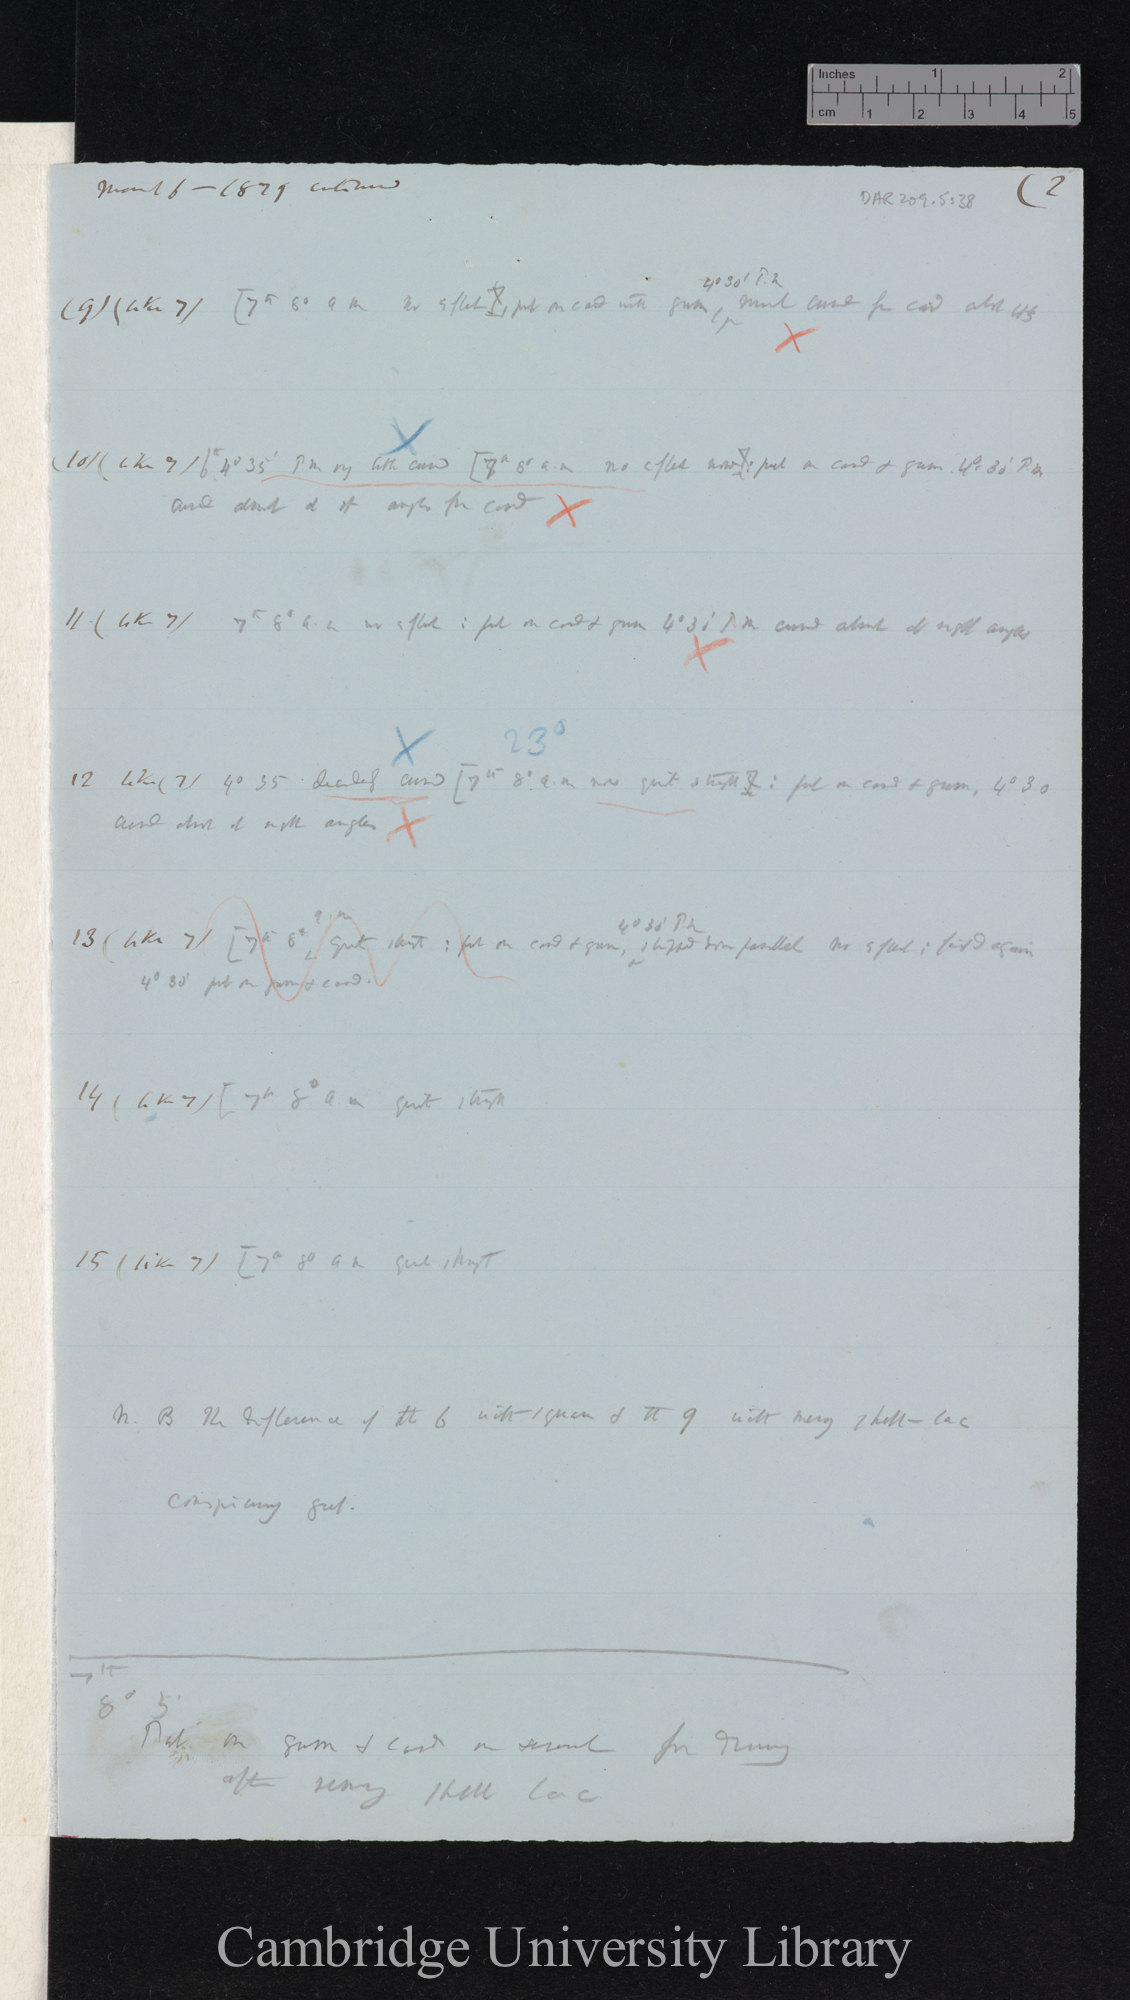 March 6 — 1879 continued
DAR 209.5:38
(2
Inches 1 2
cm 1 2 3 4 5
4° 30' P.m
(9) (like 7) [7th 8° a m no effect, put on card with gum, much curved from card
(10) (like 7) 6th 4° 35' P.m very little curved [7th 8° a.m no effect now: put on card & gum 4° 30' P.m
curved about at rt angles from card
11 (like 7) 7th 8° a.m no effect: put on card & gum 4° 30' P.m curved about at right angles
23°
12 like (7) 4° 35 decidedly curved [7th 8° a.m now quite straight: put on card & gum, 4° 30
curved about at right angles
a.m
4° 30' P.m
13 (like 7) [7th 8° quite straight: put on card & gum, parallel no effect: tried again
4° 30' put on gum & card.
14 (like 7) [7th 8° a m quite straight
15 (like 7) [7th 8° a m quite straight
N. B The difference of the 6 with & the 9 with merely shell-lac
conspicuously great.
7th
8° 5'
Put on gum & card on several for drawing
after using shell lac
Cambridge University Library